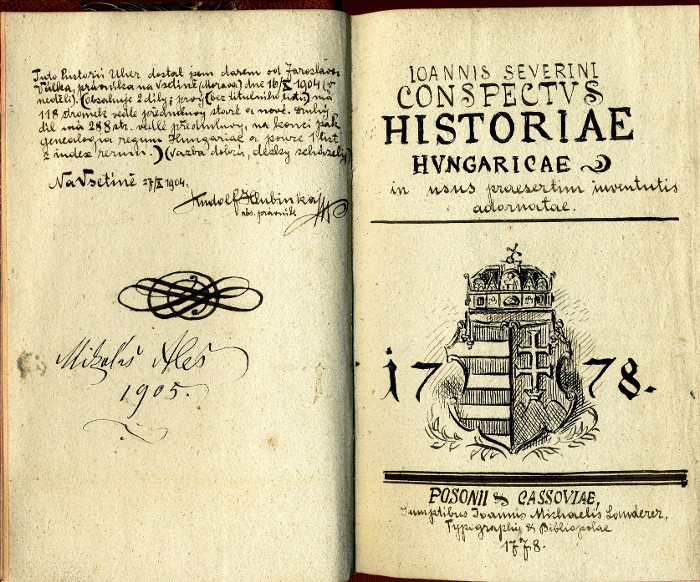 Tuto historii Uher dostal jsem darem od Jaroslava
Války, právníka na Vsetíně (Morava) dne 16/X 1904 (v
neděli). (Obsahuje 2 díly; prvý (bez titulního listu) má
118 stránek vedle předmluvy staré a nové. Druhý
díl má 288 str. vedlé předmluvy, na konci pak
genealogia regum Hungariae a pouze 1 list
z index rerum.) (Vazba dobrá, desky scházely)
Na Vsetíně 27/X 1904.
Rudolf Hlubinka
abs. právník
Mikoláš Aleš
1905.
IOANNIS SEVERINI
CONSPECTVS
HISTORIAE
HVNGARICAE
in usus praesertim iuventutis
adornatae.
17 78.
POSONII & CASSOVIAE,
Sumptibus Ioannis Michaelis Landerer,
Typographi & Bibliopolae
1778.